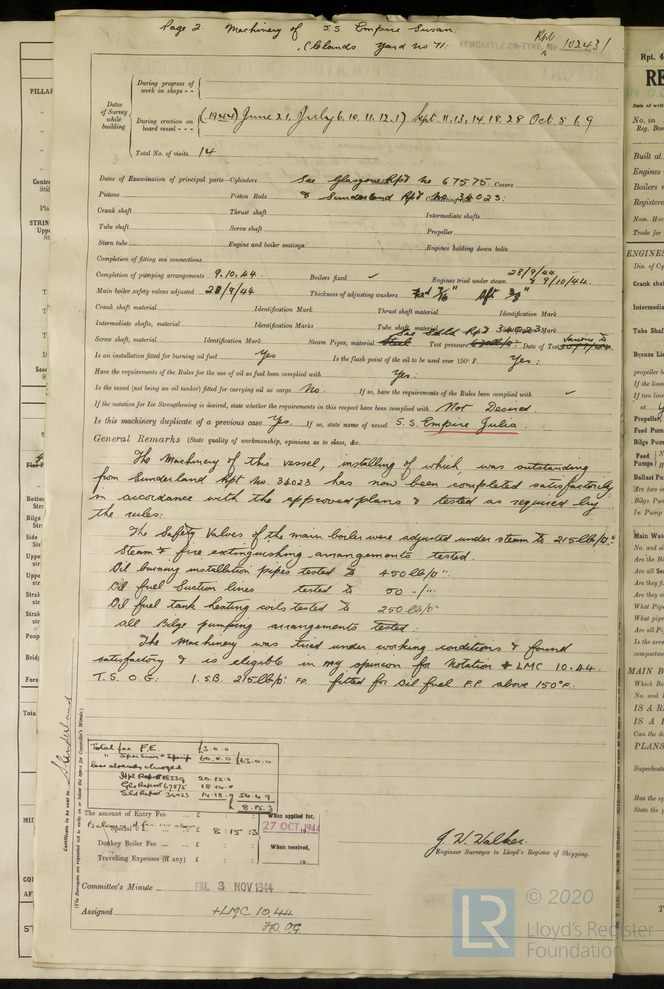 Page 2. Machinery of S.S. Empire Susan.
Clelands Yard No 71.
NEWCASTLE-ON-TYNE, No. 102431
Dates of Survey while building
During progress of work in shops - -
During erection on board vessel - - - (1944) June 21, July 6. 10. 11. 12. Sept. 11. 13. 14. 18. 28 Oct. 5. 6. 9
Total No. of visits 14
Dates of Examination of principal parts—Cylinders See Glasgow Rpt No 67575 Covers
Pistons Piston Rods & Sunderland Rpt No. 34023.
Crank shaft Thrust shaft Intermediate shafts
Tube shaft Screw shaft Propeller
Stern tube Engine and boiler seatings Engines holding down bolts
Completion of fitting sea connections
Completion of pumping arrangements 9.10.44 Boilers fixed ✓ Engines tried under steam 28/9/44 & 9/10/44.
Main boiler safety valves adjusted 28/9/44 Thickness of adjusting washers 7/16" Aft 3/8"
Crank shaft material Identification Mark Thrust shaft material Identification Mark
Intermediate shafts, material Identification Marks Tube shaft, material See Sdld Rpt 34023 Mark
Screw shaft, material Identification Mark Steam Pipes, material Steel Test pressure Date of Test
Is an installation fitted for burning oil fuel Yes Is the flash point of the oil to be used over 150° F. Yes.
Have the requirements of the Rules for the use of oil as fuel been complied with Yes.
Is the vessel (not being an oil tanker) fitted for carrying oil as cargo No. If so, have the requirements of the Rules been complied with ✓
If the notation for Ice Strengthening is desired, state whether the requirements in this respect have been complied with Not Desired.
Is this machinery duplicate of a previous case Yes. If so, state name of vessel S.S. Empire Julia.
General Remarks (State quality of workmanship, opinions as to class, &c.
The Machinery of this vessel, installing of which, was outstanding
from Sunderland Rpt No. 34023 has now been completed satisfactorily
in accordance with the approved plans & tested as required by
the rules.
The Safety Valves of the main boiler were adjusted under steam to 215 lb/□"
Steam & fire extinguishing arrangements tested.
Oil burning installation pipes tested to 450 lb/□"
Oil fuel Suction lines tested to 50 -/"
Oil fuel tank heating coils tested to 250 lb/□"
all Bilge pumping arrangements tested.
The Machinery was tried under working conditions & found
satisfactory & is eligible in my opinion for Notation + LMC 10.44.
T.S. O.G. 1.S.B. 215 lb/□" F.D. fitted for oil fuel F.P. above 150°F.
Total fee F.E. £3.0.0
" Specificn 60.0.0 £63.0.0
less already charged
Glo Report 67575
Sld Report 34023 14.18.9 54.4.9
£ 8.15.3
The amount of Entry Fee £ : :
Special £ 8 : 15 : 3
Donkey Boiler Fee £ : :
Travelling Expenses (if any) £ : :
When applied for,
27 OCT 1944
When received,
19
J. W. Walker.
Engineer Surveyor to Lloyd's Register of Shipping.
Committee's Minute FRI. 3 NOV 1944
Assigned + LMC 10.44
FD OG
Certificate to be sent to Sunderland
(The Surveyors are requested not to write on or below the space for Committee's Minute.)
© 2020
LR
Lloyd's Register
Foundation